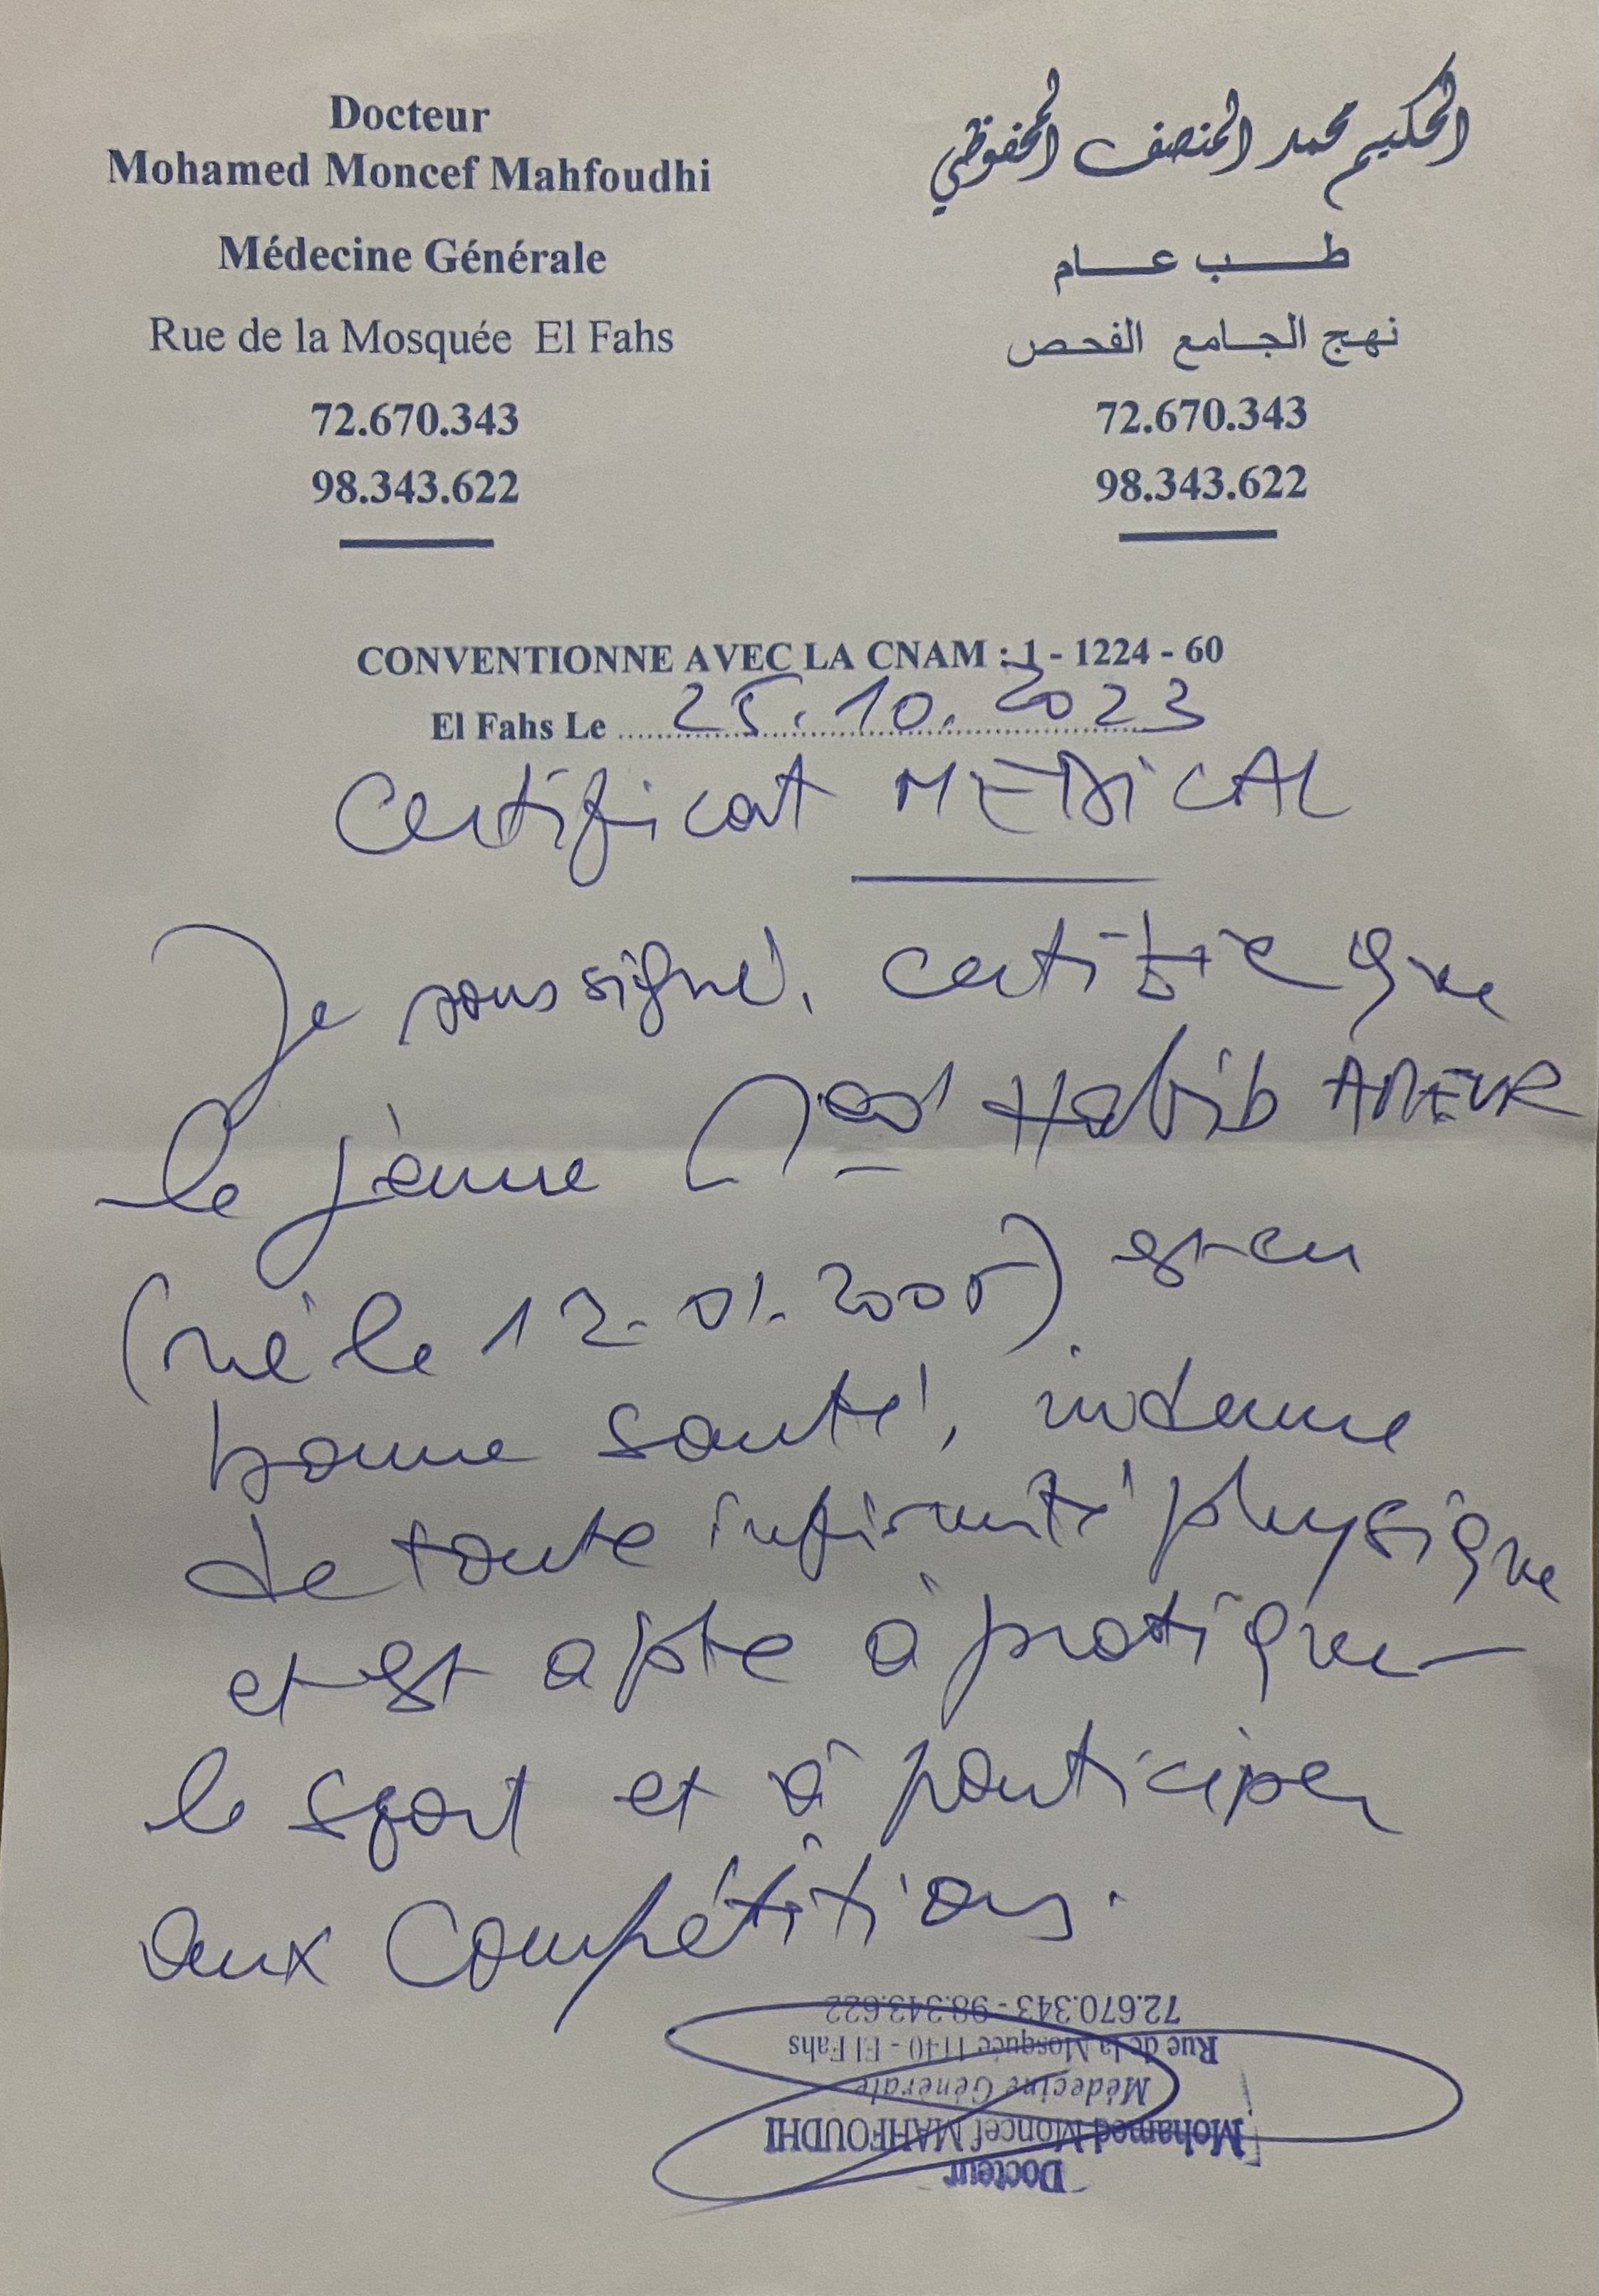 Docteur
Mohamed Moncef Mahfoudhi
Médecine Générale
Rue de la Mosquée El Fahs
72.670.343
98.343.622
الحكيم محمد المنصف المحفوظي
طب عام
نهج الجامع الفحص
72.670.343
98.343.622
CONVENTIONNE AVEC LA CNAM : 1 - 1224 - 60
El Fahs Le 25.10.2023
Certificat MEDiCAL
Je soussigné, certifie que
le jeune Med Habib AMEUR
(né le 12.01.2005) est en
bonne santé, indemne
de toute infirmité physique
et est apte à pratiquer
le sport et à participer
aux Compétitions.
Docteur
Mohamed Moncef MAHFOUDHI
Médecine Générale
Rue de la Mosquée 1140 - El Fahs
72.670.343 - 98.343.622